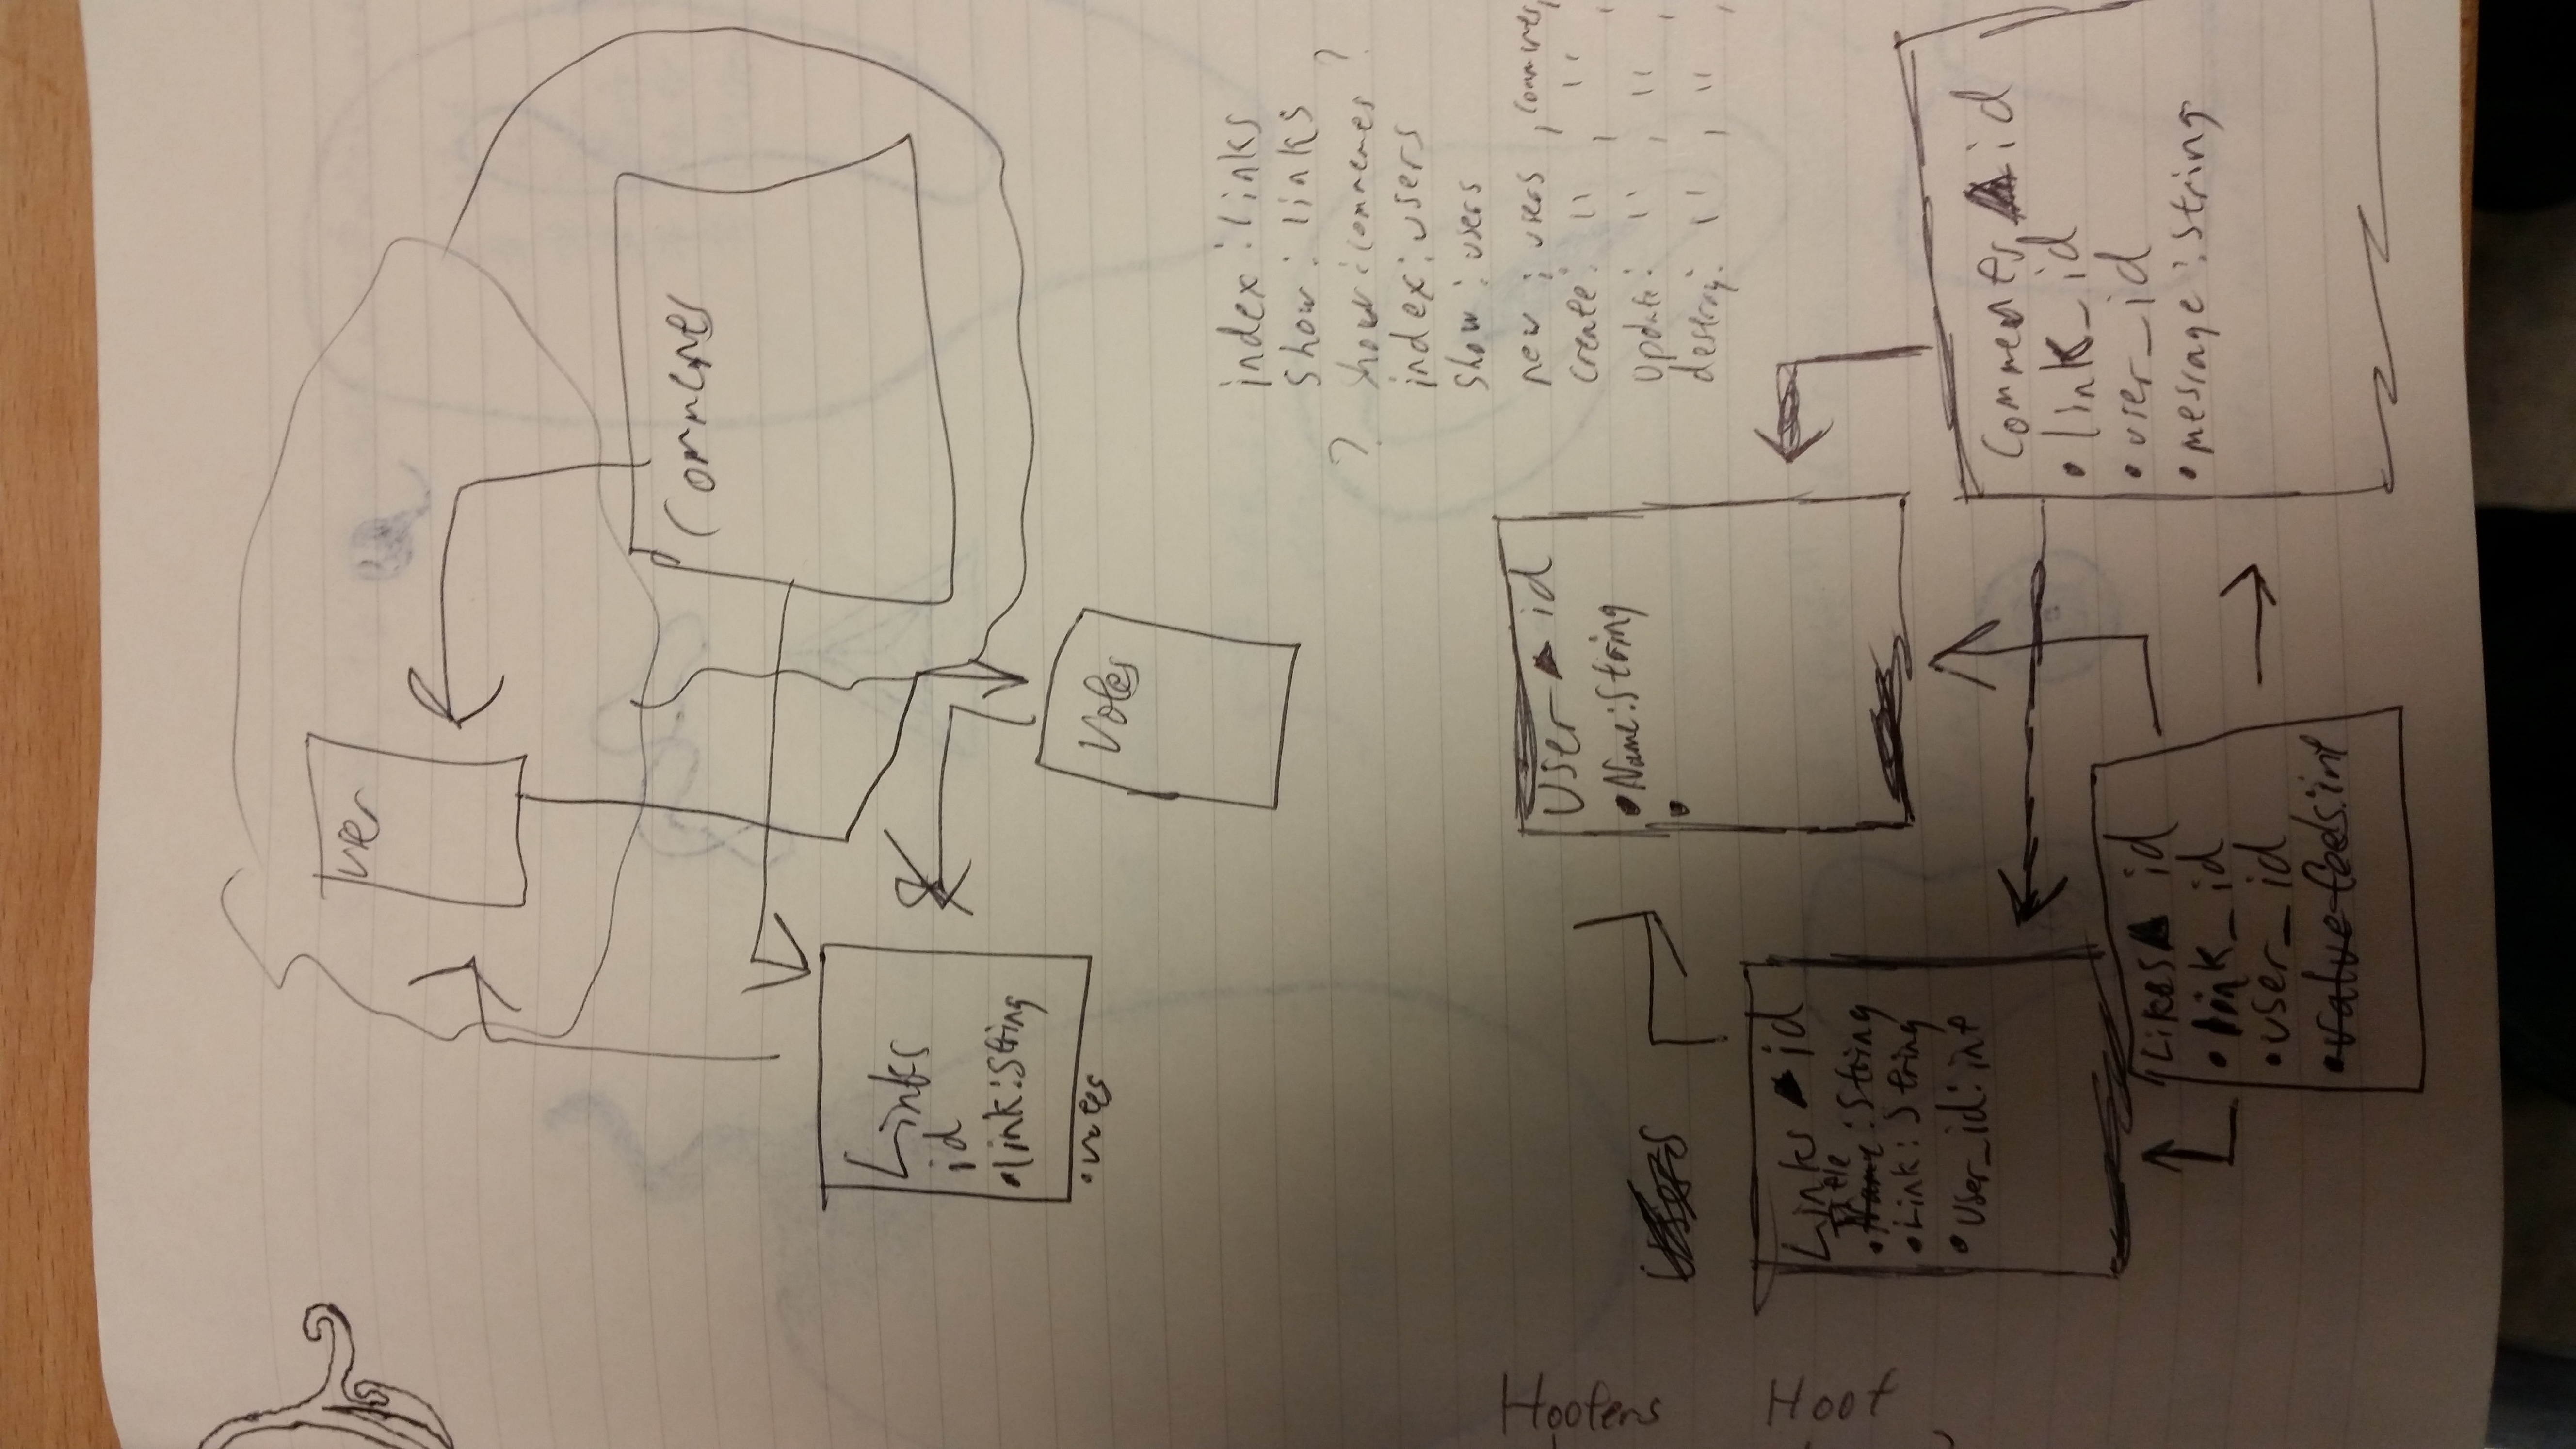 User
Comments
Links
id
•link:String
•votes
Votes
index : links
show : links
? show : comments ?
index : users
show : users
new : users , comments,
create: " , " ,
update: " , " ,
destroy: " , " ,
Hooters
Hoot
Users
User id
•Name:String
•
Links id
Title
•Name : String
•Link : String
•User_id: int
Comments id
•link_id
•user_id
•message : String
Likes id
•link_id
•user_id
•value feels:int